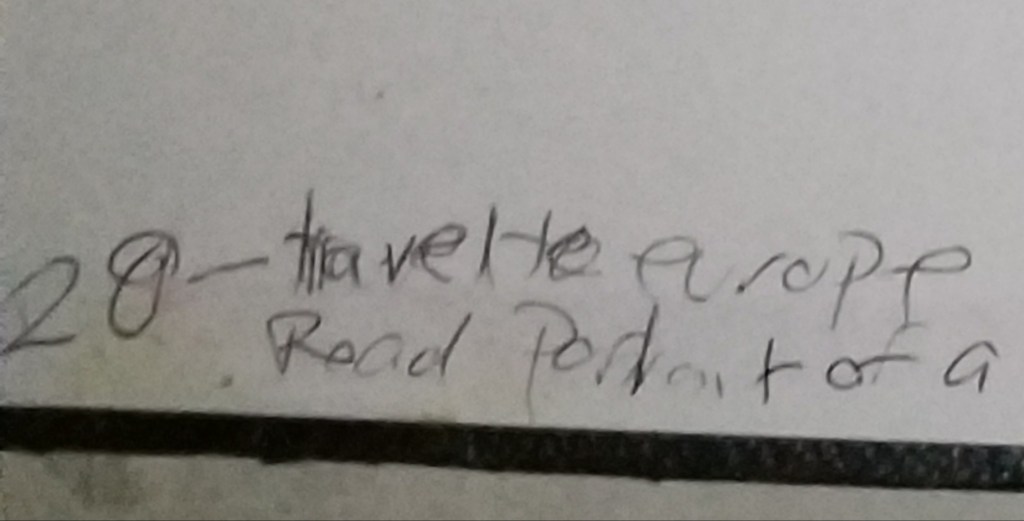 28-travel to europe
. Read Portrait of a